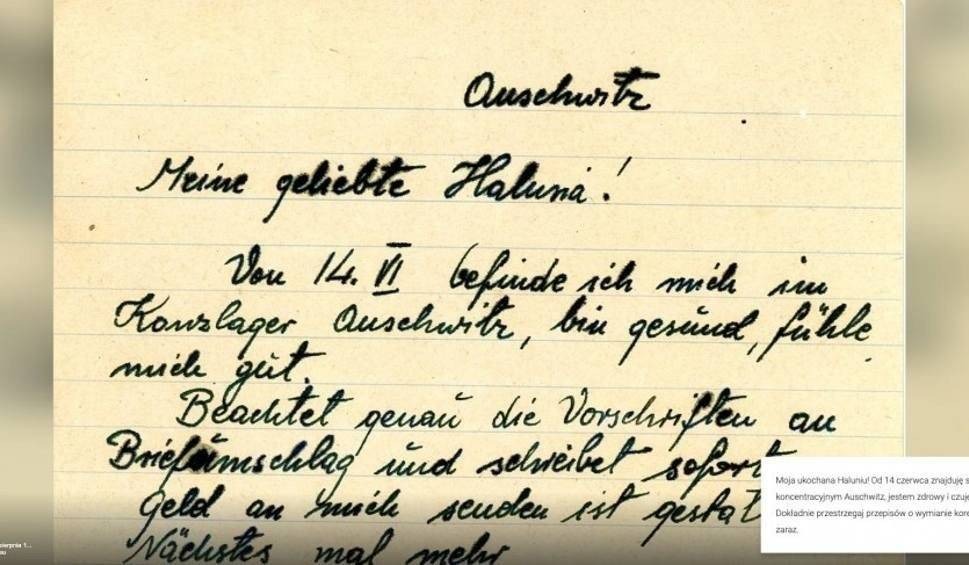 Auschwitz
Meine geliebte Halusia!
Von 14. VI befinde ich mich im
Konzlager Auschwitz, bin gesund, fühle
mich gut.
Beachtet genau die Vorschriften an
Briefumschlag und schreibet sofort
Geld an mich senden ist gestat
Nächstes mal mehr
Moja ukochana Haluniu! Od 14 czerwca znajduję s
koncentracyjnym Auschwitz, jestem zdrowy i czuję
Dokładnie przestrzegaj przepisów o wymianie kore
zaraz.
sierpnia 1...